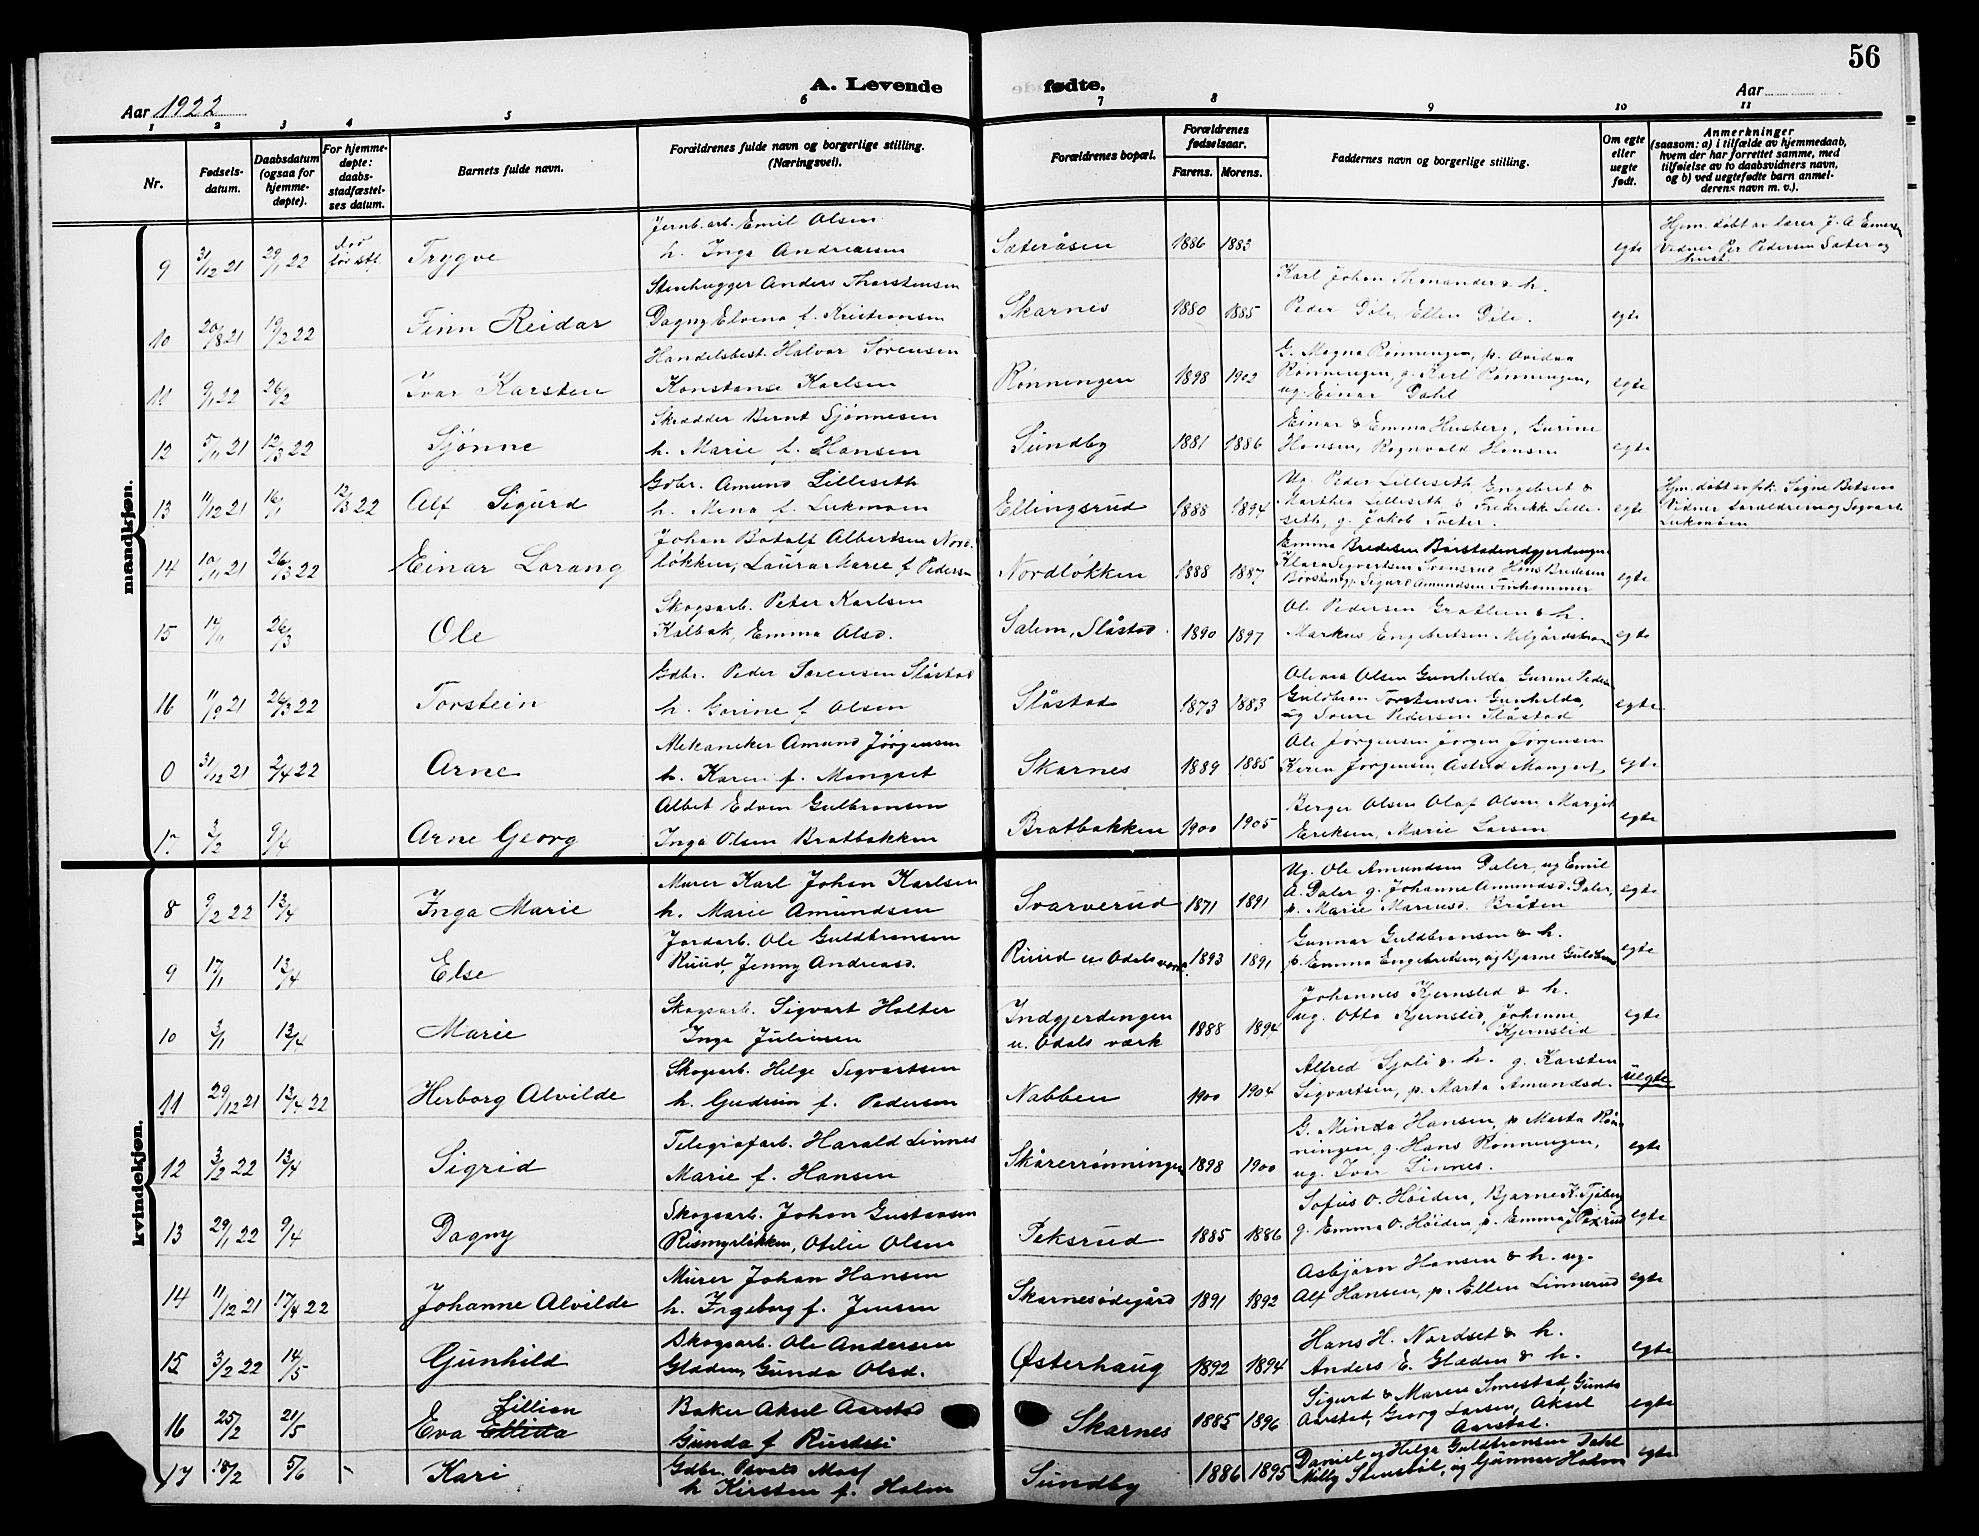 56
A. Levende fødte.
Aar 1922
Aar
1 2 3 4 5 6 7 8 9 10 11
Nr.
Fødsels-
datum.
Daabsdatum
(ogsaa for
hjemme-
døpte).
For hjemme-
døpte:
daabs-
stadfæstel-
ses datum.
Barnets fulde navn.
Forældrenes fulde navn og borgerlige stilling.
(Næringsvei).
Forældrenes bopæl.
Forældrenes
fødselsaar.
Farens. Morens.
Faddernes navn og borgerlige stilling.
Om egte
eller
uegte
født.
Anmerkninger
(saasom: a) i tilfælde av hjemmedaab,
hvem der har forrettet samme, med
tilføielse av to daabsvidners navn,
og b) ved uegtefødte barn anmel-
derens navn m. v.).
mandkjøn.
9 31/12 21 29/1 22 Trygve
Jernb. arb. Emil Olsen
h. Inga Andreassen
Sæteråsen 1886 1883 egte
Hjm. døbt av lærer J. A.
Vidner Per Pedersen Sæter og
hust.
10 20/8 21 19/2 22 Finn Reidar
Stenhugger Anders Thorstensen
Dagny Elvina f. Kristiansen
Skarnes 1880 1885
Karl Johan Thomander & h.
Peder Døle, Ellen Døle.
egte
11 9/1 22 26/2 Ivar Karsten
Handelsbest. Halvor Sørensen
Konstanse Karlsen
Rønningen 1898 1902
G. Magna Rønningen, p.
Rønningen, g. Karl Rønningen,
ug. Einar Dahl
egte
12 5/11 21 12/3 22 Sjønne
Skrædder Bernt Sjønnesen
h. Marie f. Hansen
Sundby 1881 1886
Einar & Emma Husberg, Gurine
Hansen, Ragnvald Hansen
egte
13 11/12 21 16/1 12/3 22 Alf Sigurd
Gdbr. Amund Lilleseth
h. Mena f. Lukmoen
Ellingsrud 1888 1894
Ug. Peder Lilleseth, Engebret &
Marthea Lilleseth & Fredrikk Lille-
seth, g. Jakob Tveter.
egte
Hjm. døbt av frk. Signe Betsen
Vidner foreldrene og Sigvart
Lukmoen
14 10/11 21 26/3 22 Einar Lorang
Johan Botolf Albertsen Nord-
løkken, Laura Marie f. Pedersen
Nordløkken 1888 1887
Emma Bredesen Børstadindgjerdingen
Klara Sigvartsen Svensrud Hans Bredesen
Sigurd Amundsen
egte
15 14/11 26/3 Ole
Skogsarb. Peter Karlsen
Kalbak, Emma Olsd.
Salem, Slåstad. 1890 1897
Ole Pedersen & h.
Markus Engebretsen
egte
16 11/9 21 26/3 22 Torstein
Gdbr. Peder Sørensen Slåstad
h. Gorine f. Olsen
Slåstad 1873 1883
Olava Olsen Gunhilda Gurine Peder
Guldbran Torstensen Gunhilda,
og Peder Slåstad
egte
0 31/12 21 2/4 22 Arne
Mekaniker Amund Jørgensen
h. Karen f. Mangset
Skarnes 1889 1885
Ole Jørgensen Jørgen Jørgensen
Karen Jørgensen, Astrid Mangset,
egte
17 3/2 9/4 Arne Georg
Albet Edvin Gulbransen
Inga Olsen Bratbakken
Bratbakken 1900 1905
Berger Olsen Olaf Olsen Margit
Eriksen, Marie Larsen
egte
kvindekjøn.
8 9/2 22 13/4 Inga Marie
Murer Karl Johan Karlsen
h. Marie Amundsen
Svarverud 1871 1891
Ug. Ole Amundsen Daler, ug Emil
A. Daler g. Johanne Amundsd. Daler,
p. Marie Braten
egte
9 17/1 13/4 Else
Jordarb. Ole Guldbransen
Ruud, Jenny Andreasd.
Ruud u Odals værk. 1893 1891
Gunnar Guldbransen & h.
p. Emma Engebretsen, og Bjarne Guldbrans
egte
10 3/1 13/4 Marie
Skogsarb. Sigvart Holter
Inga Juliusen
Indgjerdingen
u. Odals værk
1888 1894
Johannes Kjernslid & h.
ug. Otto Kjernslid, Johanne
Kjernslid
egte
11 29/12 21 13/4 22 Herborg Alvilde
Skogsarb. Helge Sigvartsen
h. Gudrun f. Pedersen
Nabben 1900 1904
Alfred Sjøli & h. g. Karsten
Sigvartsen, p. Marta Amundsd.
uegte
12 3/2 22 13/4 Sigrid
Telegrafarb. Harald Linnes
Marie f. Hansen
Skårerrønningen 1898 1900
G. Minda Hansen, p. Marta Røn-
ningen, g. Hans Rønningen,
ug. Ivar Linnes.
egte
13 29/1 22 9/4 Dagny
Skogsarb. Johan Gustavsen
Rismyrløkken, Otilie Olsen
Peksrud 1885 1886
Sofus O. Høiden, Bjarne K. Tjaberg
g. Emma O. Høiden p. Emma J Pexrud
egte
14 11/12 21 17/4 22 Johanne Alvilde
Murer Johan Hansen
h. Ingeborg f. Jensen
Skarnesødegård 1891 1892
Asbjørn Hansen & h. ug.
Alf Hansen, p. Ellen Linnerud
egte
15 3/2 22 14/5 Gunhild
Skogsarb. Ole Andersen
Glæden, Gunda Olsd.
Østerhaug 1892 1894
Hans H. Nordset & h.
Anders E. Glæden & h.
egte
16 25/2 21/5 Eva Lillian
Baker Aksel Aarstad
Gunda f
Skarnes 1885 1896
Sigurd & Maren Smestad, Gunda
Aarstad, Georg Larsen, Aksel
Aarstad.
egte
17 18/2 5/6 - Kari
Gdbr. Osvald Moss
h Kirsten f. Holm
Sundby 1886 1895
Daniel og Helga Guldbransen Dahl
Milly Stensbøl, og Gunnar Holm
egte